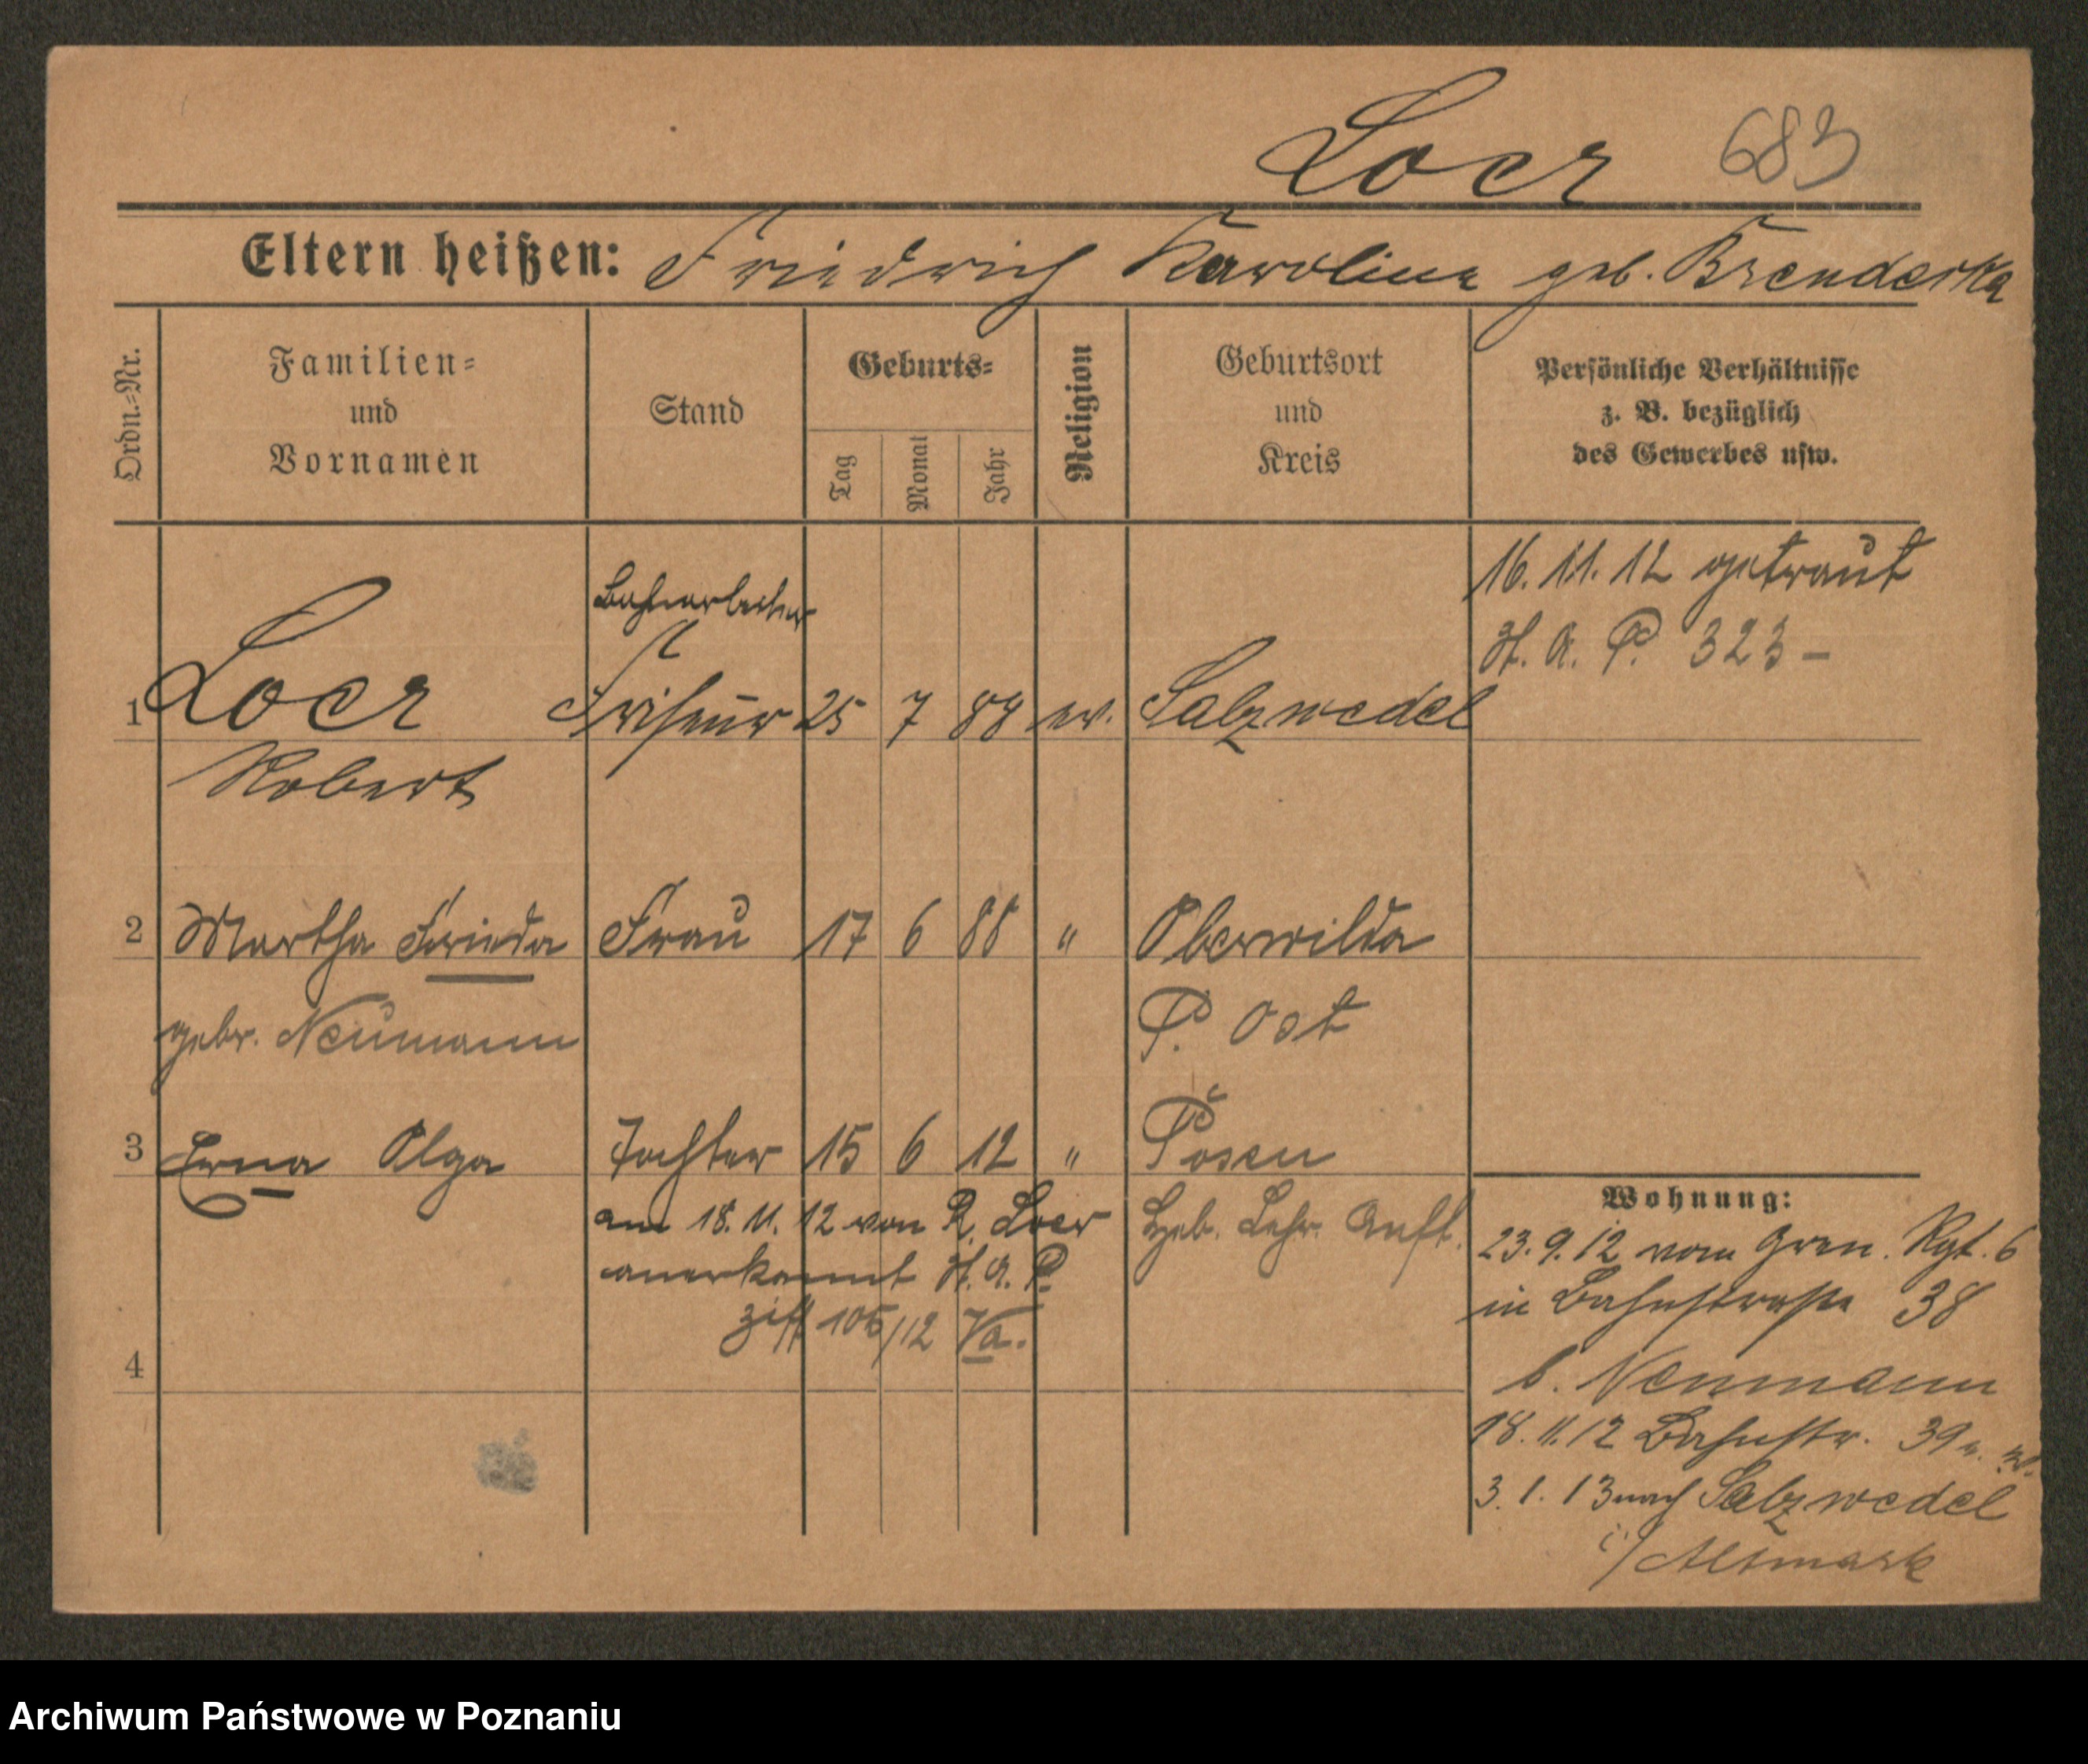 Loer 683
Eltern heißen: Friedrich Karoline geb.
Ordn.-Nr.
Familien-
und
Vornamen
Stand
Geburts-
Tag
Monat
Jahr
Religion
Geburtsort
und
Kreis
Persönliche Verhältnisse
z. B. bezüglich
des Gewerbes usw.
16. 11. 12 getraut
H. A. P. 323 –
Bahnarbeiter
1 Loer Friseur 25 7 88 ev. Salzwedel
Robert
2 Martha Frieda Frau 17 6 88 " Oberwilda
gebr. Neumann P. Ost
3 Erna Olga Tochter 15 6 12 " Posen
am 18. 11. 12 von R. Loer
anerkannt H. A. P.
105/12 Va.
4
Wohnung:
23. 9. 12 vom Gren. Rgt. 6
in Bahnstraße 38
b. Neumann
18. 11. 12 Bahnstr. 39
3. 1. 13 nach Salzwedel
i/Altmark
Archiwum Państwowe w Poznaniu